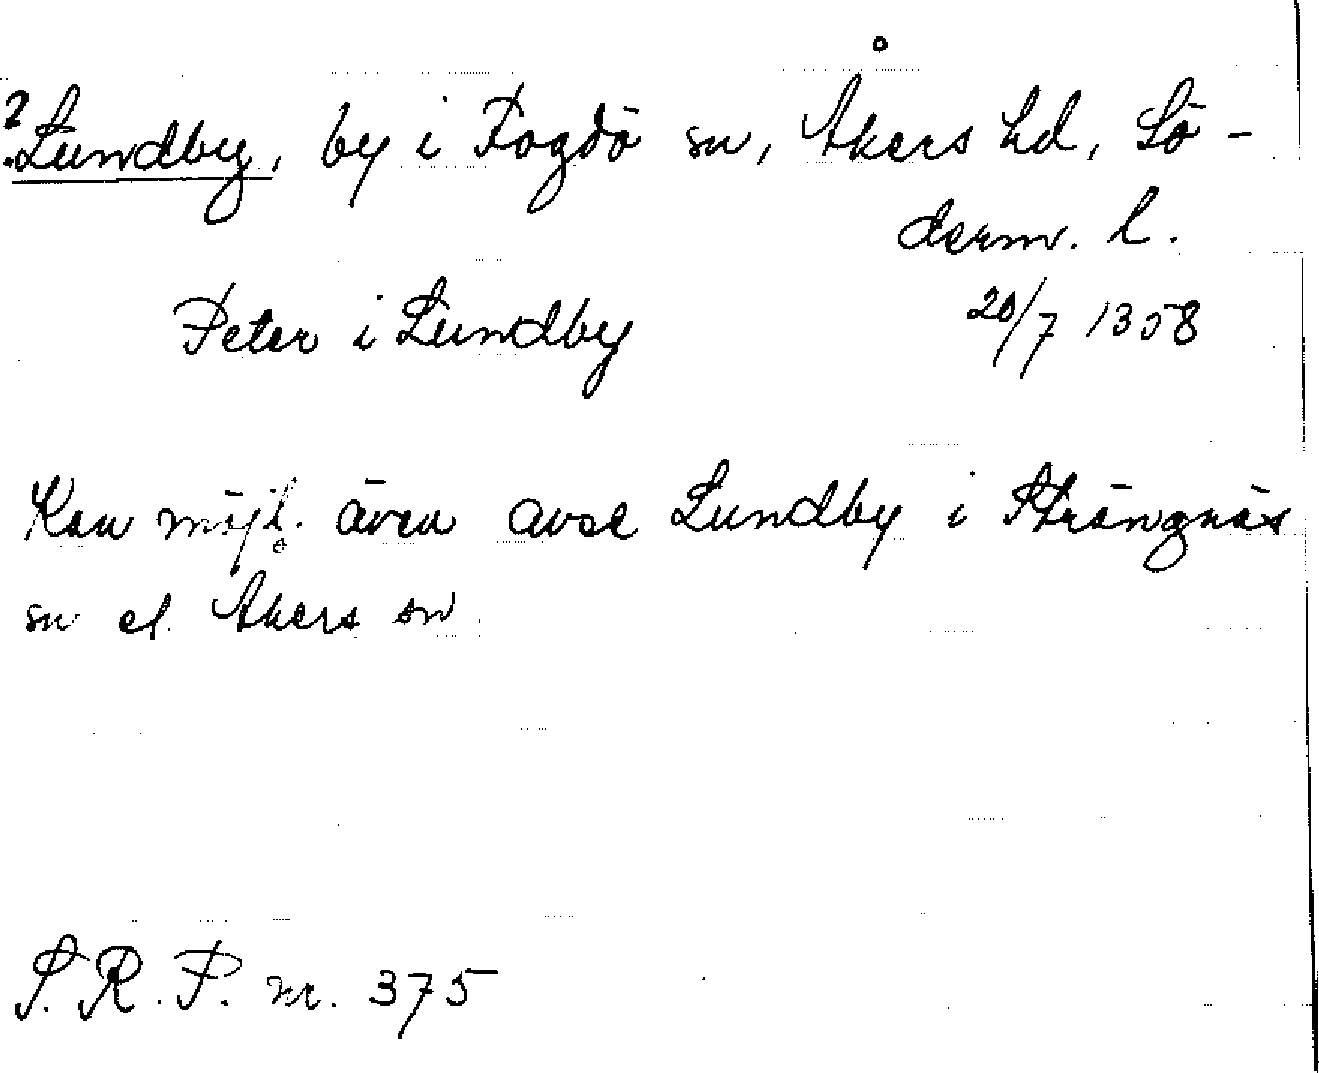 ? Lundby, by i Fogdö sn, Åkers hd, Sö-
derm. l.
Peter i Lundby 20/7 1358
Kan möjl. även avse Lundby i Strängnäs
sn el. Åkers sn
S.R.P. nr. 375